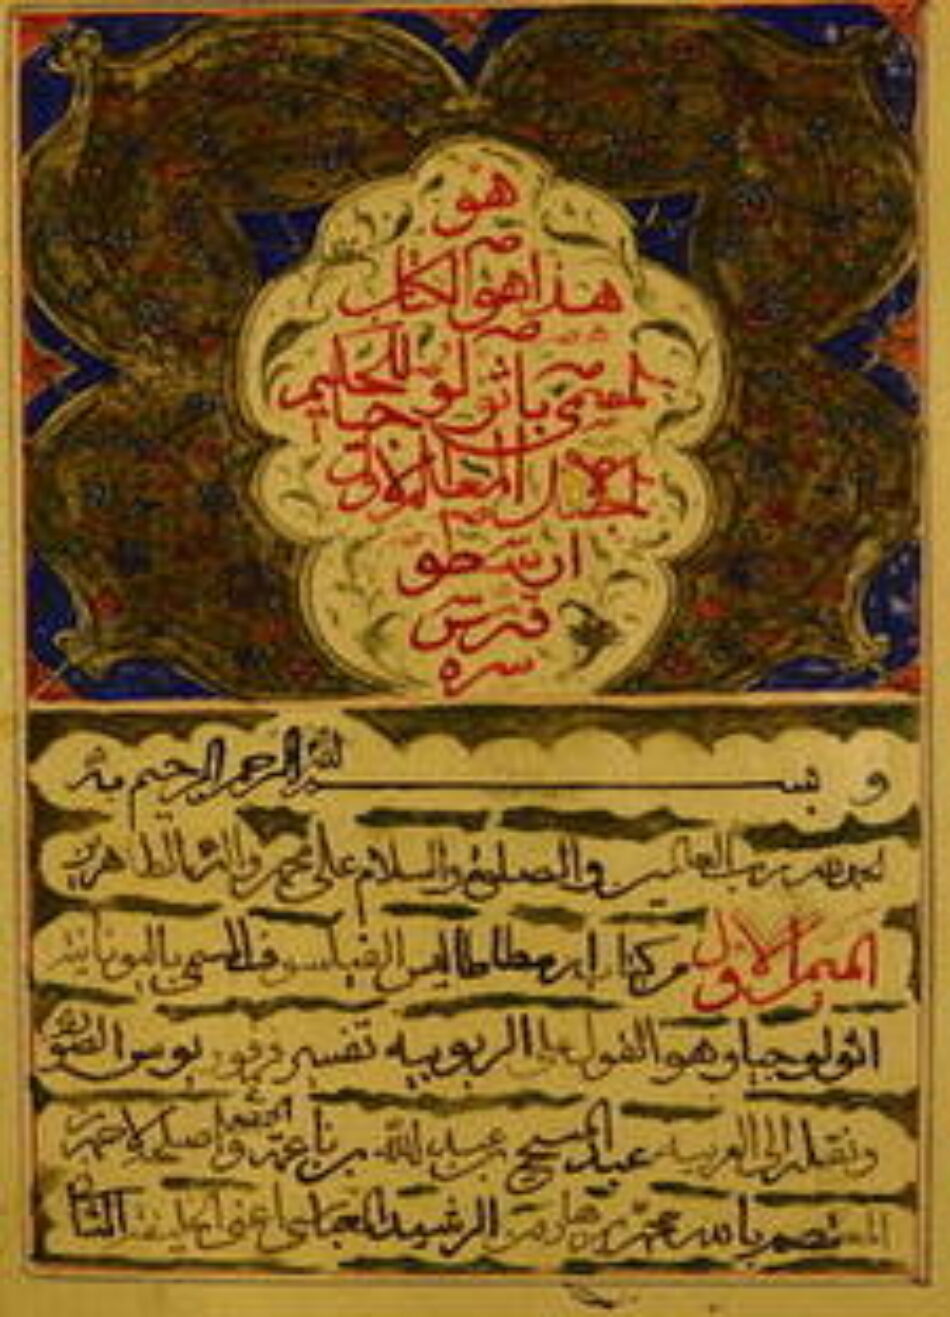 هو
هذا هو الكتاب
المسمى باثولوجيا للحكيم
الجليل المعلم الاول
ارسطو
قدس
سره
و بسم الله الرحمن الرحيم به
الحمد لله رب العالمين والصلوة والسلام على محمد واله الطاهرين
الميمر الاول من كتاب ارسطاطاليس الفيلسوف المسمى باليونانية
اثولوجيا وهو القول على الربوبيه تفسير فرفوريوس الصورى
ونقله الى العربيه عبد المسيح بن عبد الله بن ناعمة الحمصى واصلحه لاحمد بن
المعتصم بالله محمد بن هارون الرشيد العباسى اعنى الخليفة الثامن